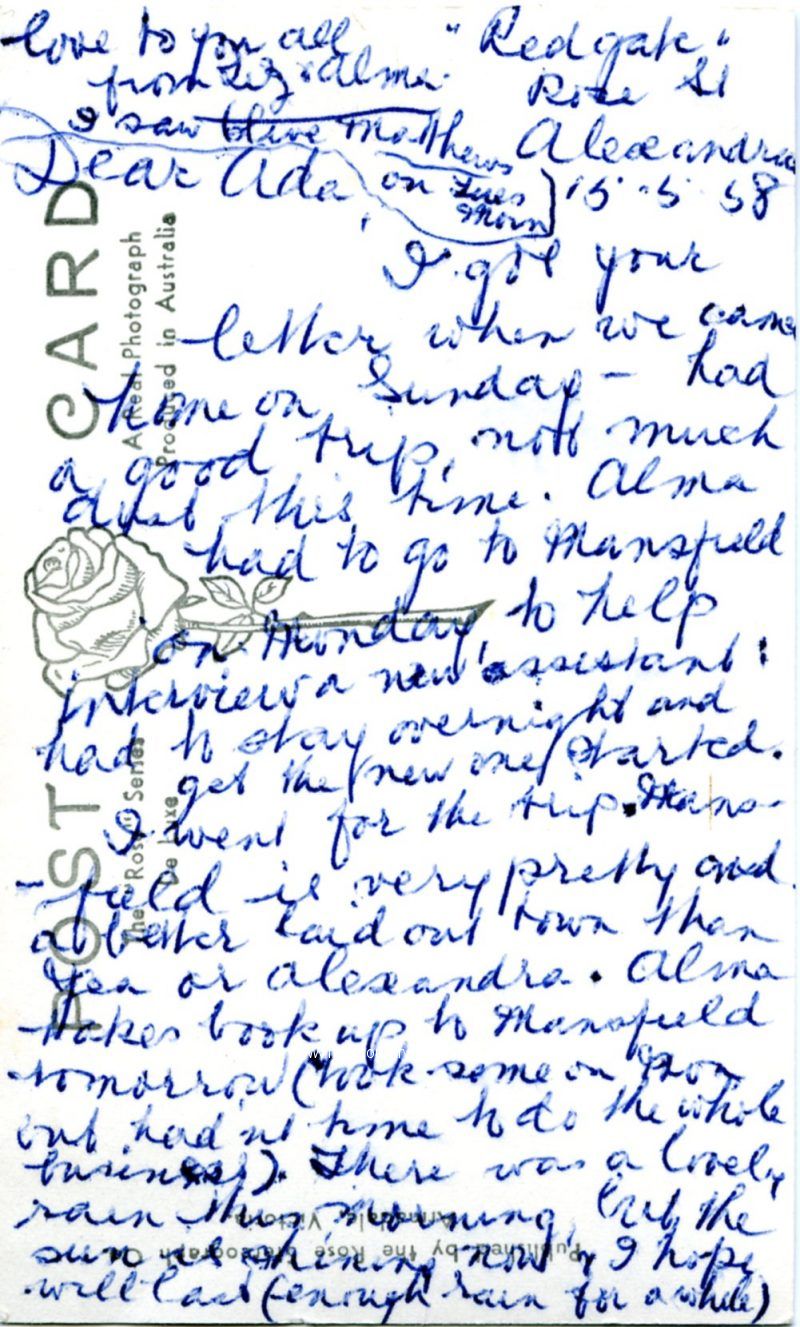 love to you all
from Liz & Alma.
I saw Olive Matthews
on Tues
Morn
"Redgate"
Rose St
Alexandra
15-5-58
Dear Ada,
I got your
letter when we came
home on Sunday - had
a good trip, not much
dust this time. Alma
had to go to Mansfield
on Monday, to help
interview a new assistant:
had to stay overnight and
get the new one started.
I went for the trip. Mans-
-field is very pretty and
a better laid out town than
Yea or Alexandra. Alma
takes book up to Mansfield
tomorrow (took some on Mon
but hadnt time to do the whole
business). There was a lovely
rain this morning, but the
sun is shining now, & I hope
will last (enough rain for awhile)
POST CARD
A Real Photograph
Produced in Australia
The Rose Series
De Luxe
Published by the Rose Stereograph Co.
Armadale, Victoria